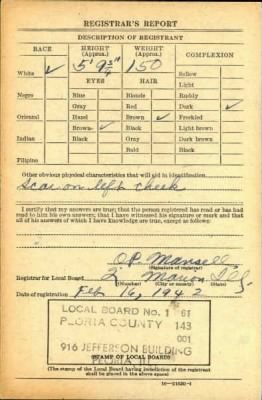 REGISTRAR'S REPORT
DESCRIPTION OF REGISTRANT
RACE HEIGHT (Approx.) WEIGHT (Approx.) COMPLEXION
White ✓ 5' 9 150 Sallow
EYES HAIR Light
Negro Blue Blonde Ruddy
Gray Red Dark ✓
Oriental Hazel Brown ✓ Freckled
Brown ✓ Black Light brown
Indian Black Gray Dark brown
Bald Black
Filipino
Other obvious physical characteristics that will aid in identification
Scar on left cheek
I certify that my answers are true; that the person registered has read or has had
read to him his own answers; that I have witnessed his signature or mark and that
all of his answers of which I have knowledge are true, except as follows:
O.P. Mansell
(Signature of registrar)
Registrar for Local Board 2 Marion Ills.
(Number) (City or county) (State)
Date of registration Feb 16, 1942
LOCAL BOARD NO. 1 61
PEORIA COUNTY 143
001
916 JEFFERSON BUILDING
PEORIA, ILL
(STAMP OF LOCAL BOARD)
(The stamp of the Local Board having jurisdiction of the registrant
shall be placed in the above space.)